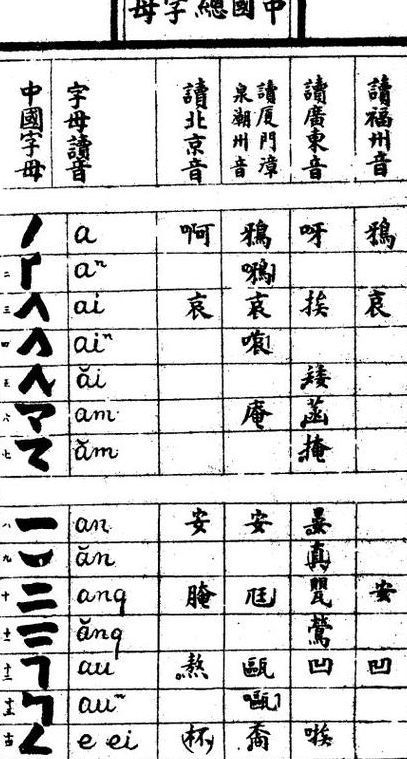 中國總字母
中國字母 字母讀音 讀北京音 讀厦門漳泉潮州音 讀廣東音 讀福州音
一 a 啊 鴉 呀 鴉
二 aⁿ
三 ai 哀 哀 挨 哀
四 aiⁿ
五 ăi 矮
六 am 庵 菡
七 ăm 掩
八 an 安 安 晏
九 ăn
十 ang 腌 尪 安
十一 ăng 鶯
十二 au 熬 甌 凹 凹
十三 auⁿ
十四 e ei (杯) 唉